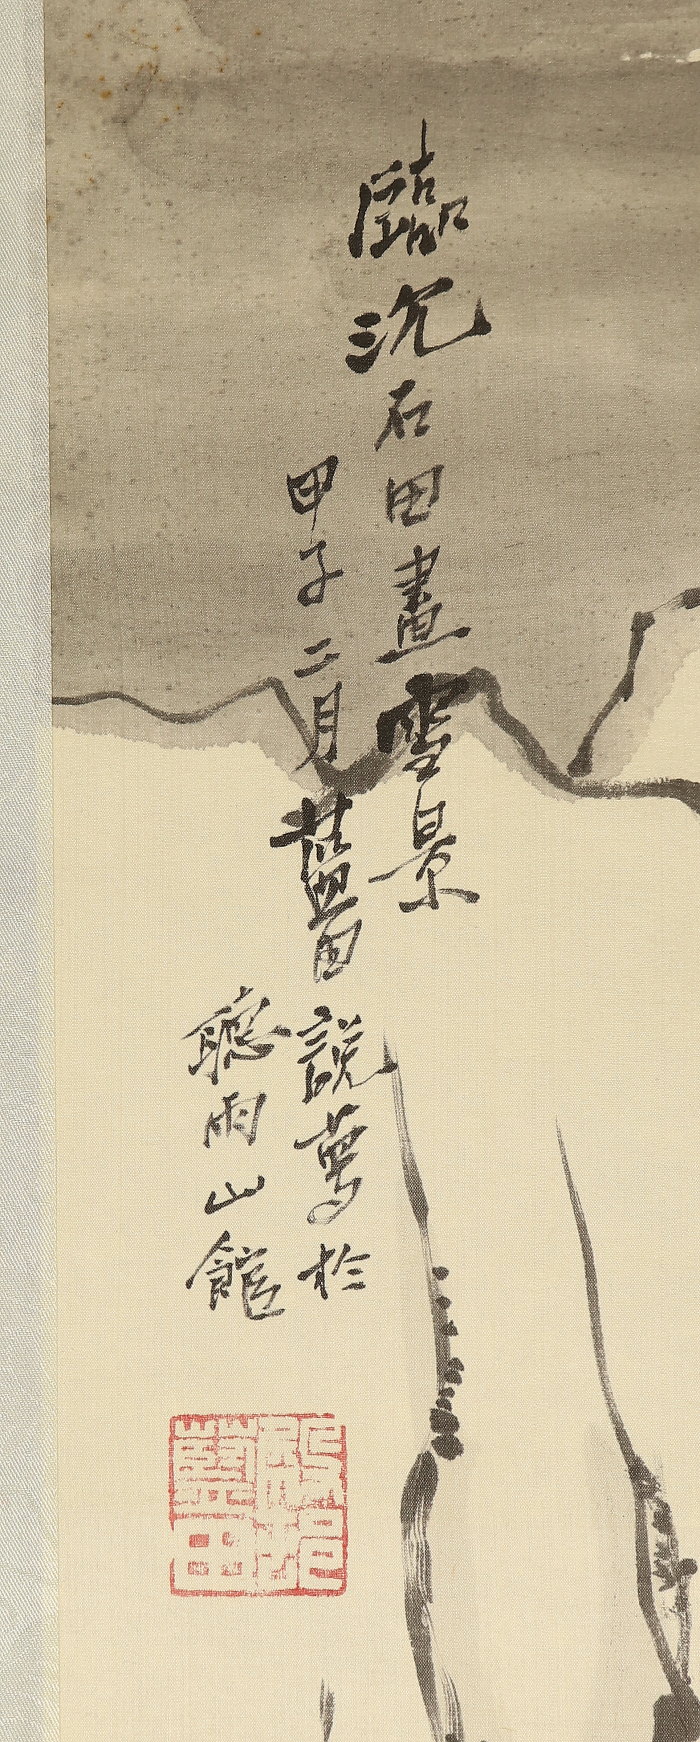 臨沈石田畫雪景
甲子二月舊田說蕚於
聽雨山館